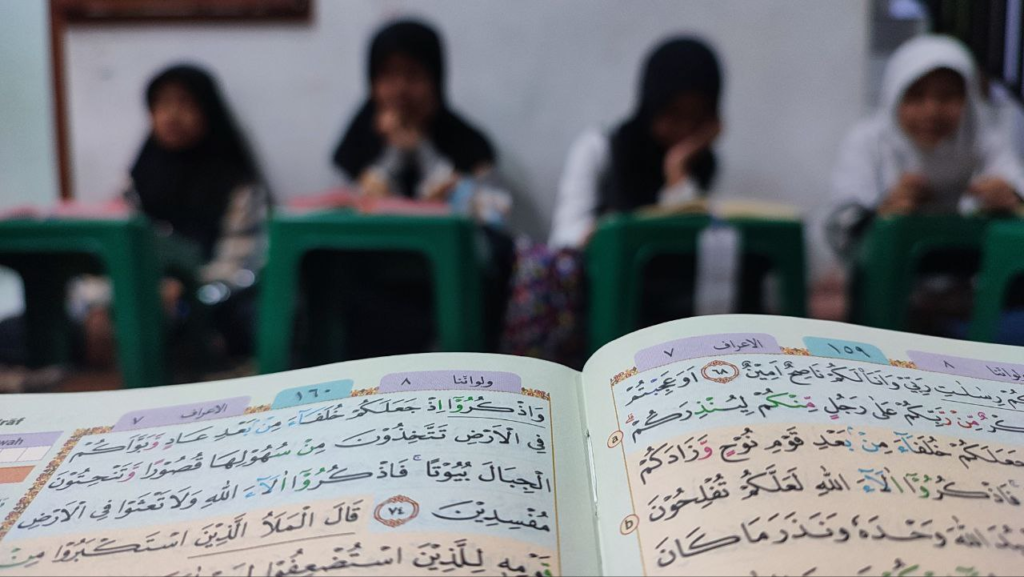 ولواننا ٨
١٥٩
الاعراف ٧
رِسٰلٰتِ رَبِّيْ وَاَنَا۠ لَكُمْ نَاصِحٌ اَمِيْنٌ ٦٨ اَوَعَجِبْتُمْ
مِّنْ رَّبِّكُمْ عَلٰى رَجُلٍ مِّنْكُمْ لِيُنْذِرَكُمْۗ
جَعَلَكُمْ خُلَفَاۤءَ مِنْۢ بَعْدِ قَوْمِ نُوْحٍ وَّزَادَكُمْ
فَاذْكُرُوْٓا اٰلَاۤءَ اللّٰهِ لَعَلَّكُمْ تُفْلِحُوْنَ
اللّٰهَ وَحْدَهٗ وَنَذَرَ مَا كَانَ
a
b
ولواننا ٨
١٦٠
الاعراف ٧
وَاذْكُرُوْٓا اِذْ جَعَلَكُمْ خُلَفَاۤءَ مِنْۢ بَعْدِ عَادٍ وَّبَوَّاَكُمْ
فِى الْاَرْضِ تَتَّخِذُوْنَ مِنْ سُهُوْلِهَا قُصُوْرًا وَّتَنْحِتُوْنَ
الْجِبَالَ بُيُوْتًاۚ فَاذْكُرُوْٓا اٰلَاۤءَ اللّٰهِ وَلَا تَعْثَوْا فِى الْاَرْضِ
مُفْسِدِيْنَ ٧٤ قَالَ الْمَلَاُ الَّذِيْنَ اسْتَكْبَرُوْا مِنْ
قَوْمِهٖ لِلَّذِيْنَ اسْتُضْعِفُوْا